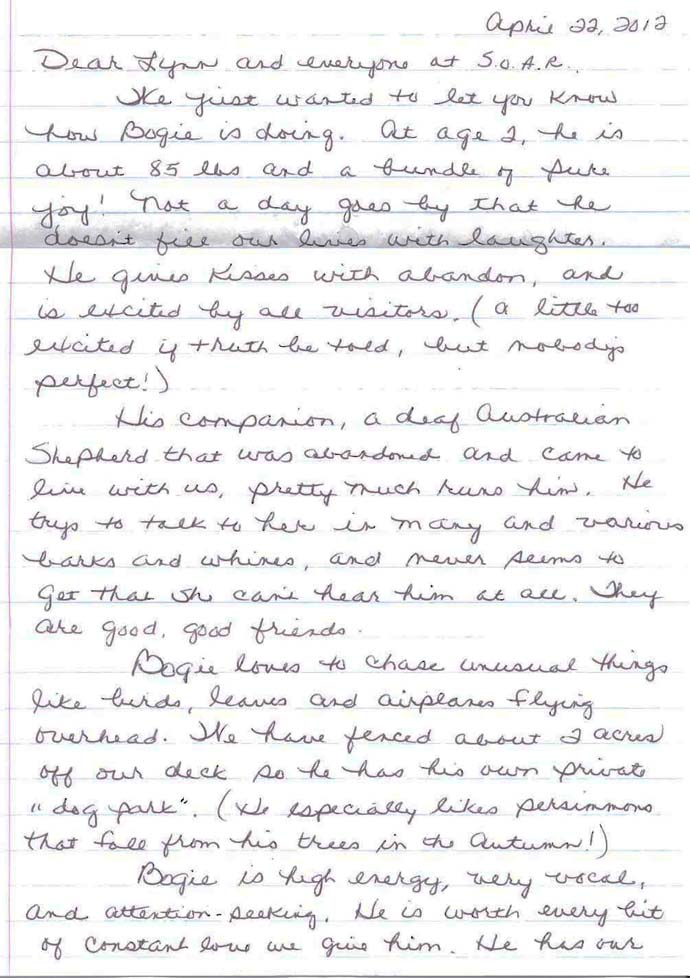 April 22, 2012
Dear Lynn and everyone at S.O.A.R.,
We just wanted to let you know
how Bogie is doing. At age 2, he is
about 85 lbs and a bundle of pure
joy! Not a day goes by that he
doesn't fill our lives with laughter.
He gives kisses with abandon, and
is excited by all visitors. (a little too
excited if truth be told, but nobody's
perfect!)
His companion, a deaf Australian
Shepherd that was abandoned and came to
live with us, pretty much runs him. He
trys to talk to her in many and various
barks and whines, and never seems to
get that she can't hear him at all. They
are good, good friends.
Bogie loves to chase unusual things
like birds, leaves and airplanes flying
overhead. We have fenced about 2 acres
off our deck so he has his own private
"dog park". (He especially likes persimmons
that fall from his trees in the Autumn!)
Bogie is high energy, very vocal,
and attention-seeking. He is worth every bit
of constant love we give him. He has our